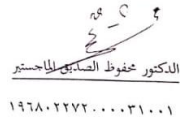 الدكتور محفوظ الصديق الماجستير
١٩٦٨٠٢٢٧٢٠٠٠٠٣١٠٠١